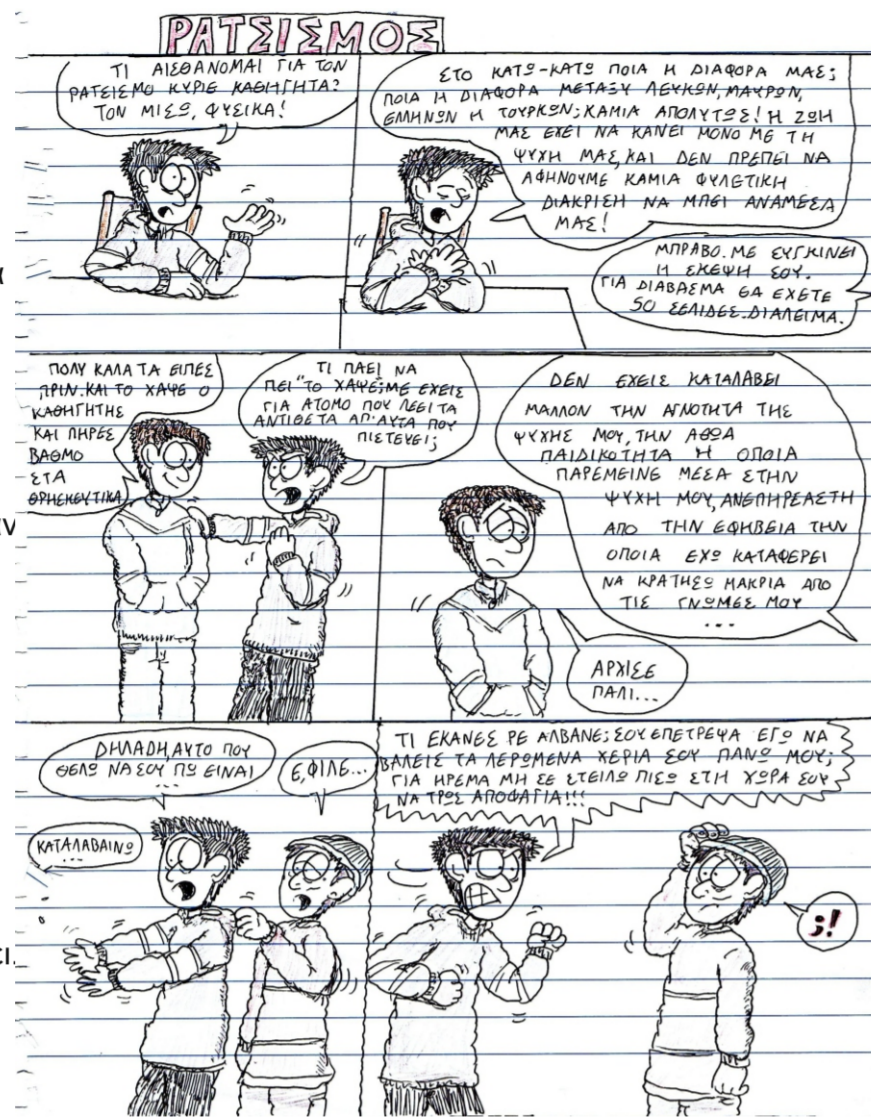 ΡΑΤΣΙΣΜΟΣ
ΤΙ ΑΙΣΘΑΝΟΜΑΙ ΓΙΑ ΤΟΝ
ΡΑΤΣΙΣΜΟ ΚΥΡΙΕ ΚΑΘΗΓΗΤΑ?
ΤΟΝ ΜΙΣΩ, ΦΥΣΙΚΑ!
ΣΤΟ ΚΑΤΩ-ΚΑΤΩ ΠΟΙΑ Η ΔΙΑΦΟΡΑ ΜΑΣ;
ΠΟΙΑ Η ΔΙΑΦΟΡΑ ΜΕΤΑΞΥ ΛΕΥΚΩΝ, ΜΑΥΡΩΝ,
ΕΛΛΗΝΩΝ Η ΤΟΥΡΚΩΝ; ΚΑΜΙΑ ΑΠΟΛΥΤΩΣ! Η ΖΩΗ
ΜΑΣ ΕΧΕΙ ΝΑ ΚΑΝΕΙ ΜΟΝΟ ΜΕ ΤΗ
ΨΥΧΗ ΜΑΣ, ΚΑΙ ΔΕΝ ΠΡΕΠΕΙ ΝΑ
ΑΦΗΝΟΥΜΕ ΚΑΜΙΑ ΦΥΛΕΤΙΚΗ
ΔΙΑΚΡΙΣΗ ΝΑ ΜΠΕΙ ΑΝΑΜΕΣΑ
ΜΑΣ!
ΜΠΡΑΒΟ. ΜΕ ΣΥΓΚΙΝΕΙ
Η ΣΚΕΨΗ ΣΟΥ.
ΓΙΑ ΔΙΑΒΑΣΜΑ ΘΑ ΕΧΕΤΕ
50 ΣΕΛΙΔΕΣ. ΔΙΑΛΕΙΜΑ.
ΠΟΛΥ ΚΑΛΑ ΤΑ ΕΙΠΕΣ
ΠΡΙΝ. ΚΑΙ ΤΟ ΧΑΨΕ Ο
ΚΑΘΗΓΗΤΗΣ
ΚΑΙ ΠΗΡΕΣ
ΒΑΘΜΟ
ΣΤΑ
ΘΡΗΣΚΕΥΤΙΚΑ
ΤΙ ΠΑΕΙ ΝΑ
ΠΕΙ "ΤΟ ΧΑΨΕ; ΜΕ ΕΧΕΙΣ
ΓΙΑ ΑΤΟΜΟ ΠΟΥ ΛΕΕΙ ΤΑ
ΑΝΤΙΘΕΤΑ ΑΠ' ΑΥΤΑ ΠΟΥ
ΠΙΣΤΕΥΕΙ;
ΔΕΝ ΕΧΕΙΣ ΚΑΤΑΛΑΒΕΙ
ΜΑΛΛΟΝ ΤΗΝ ΑΓΝΟΤΗΤΑ ΤΗΣ
ΨΥΧΗΣ ΜΟΥ, ΤΗΝ ΑΘΩΑ
ΠΑΙΔΙΚΟΤΗΤΑ Η ΟΠΟΙΑ
ΠΑΡΕΜΕΙΝΕ ΜΕΣΑ ΣΤΗΝ
ΨΥΧΗ ΜΟΥ, ΑΝΕΠΗΡΕΑΣΤΗ
ΑΠΟ ΤΗΝ ΕΦΗΒΕΙΑ ΤΗΝ
ΟΠΟΙΑ ΕΧΩ ΚΑΤΑΦΕΡΕΙ
ΝΑ ΚΡΑΤΗΣΩ ΜΑΚΡΙΑ ΑΠΟ
ΤΙΣ ΓΝΩΜΕΣ ΜΟΥ
...
ΑΡΧΙΣΕ
ΠΑΛΙ...
ΔΗΛΑΔΗ, ΑΥΤΟ ΠΟΥ
ΘΕΛΩ ΝΑ ΣΟΥ ΠΩ ΕΙΝΑΙ
...
Ε, ΦΙΛΕ...
ΚΑΤΑΛΑΒΑΙΝΩ
...
ΤΙ ΕΚΑΝΕΣ ΡΕ ΑΛΒΑΝΕ; ΣΟΥ ΕΠΕΤΡΕΨΑ ΕΓΩ ΝΑ
ΒΑΛΕΙΣ ΤΑ ΛΕΡΩΜΕΝΑ ΧΕΡΙΑ ΣΟΥ ΠΑΝΩ ΜΟΥ;
ΓΙΑ ΗΡΕΜΑ ΜΗ ΣΕ ΣΤΕΙΛΩ ΠΙΣΩ ΣΤΗ ΧΩΡΑ ΣΟΥ
ΝΑ ΤΡΩΣ ΑΠΟΦΑΓΙΑ!!!
;!